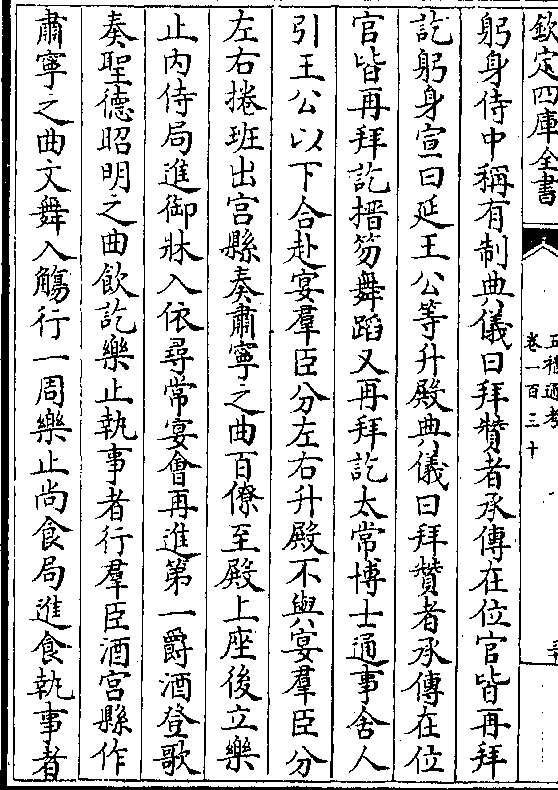 欽定四庫全書
五禮通考
卷一百三十
躬身侍中稱有制典儀曰拜贊者承傳在位官皆再拜
訖躬身宣曰延王公等升殿典儀曰拜贊者承傳在位
官皆再拜訖搢笏舞蹈又再拜訖太常博士通事舍人
引王公以下合赴宴羣臣分左右升殿不與宴羣臣分
左右捲班出宫縣奏肅寧之曲百僚至殿上座後立樂
止内侍局進御牀入依尋常宴會再進第一爵酒登歌
奏聖德昭明之曲飲訖樂止執事者行羣臣酒宫縣作
肅寧之曲文舞入觴行一周樂止尚食局進食執事者